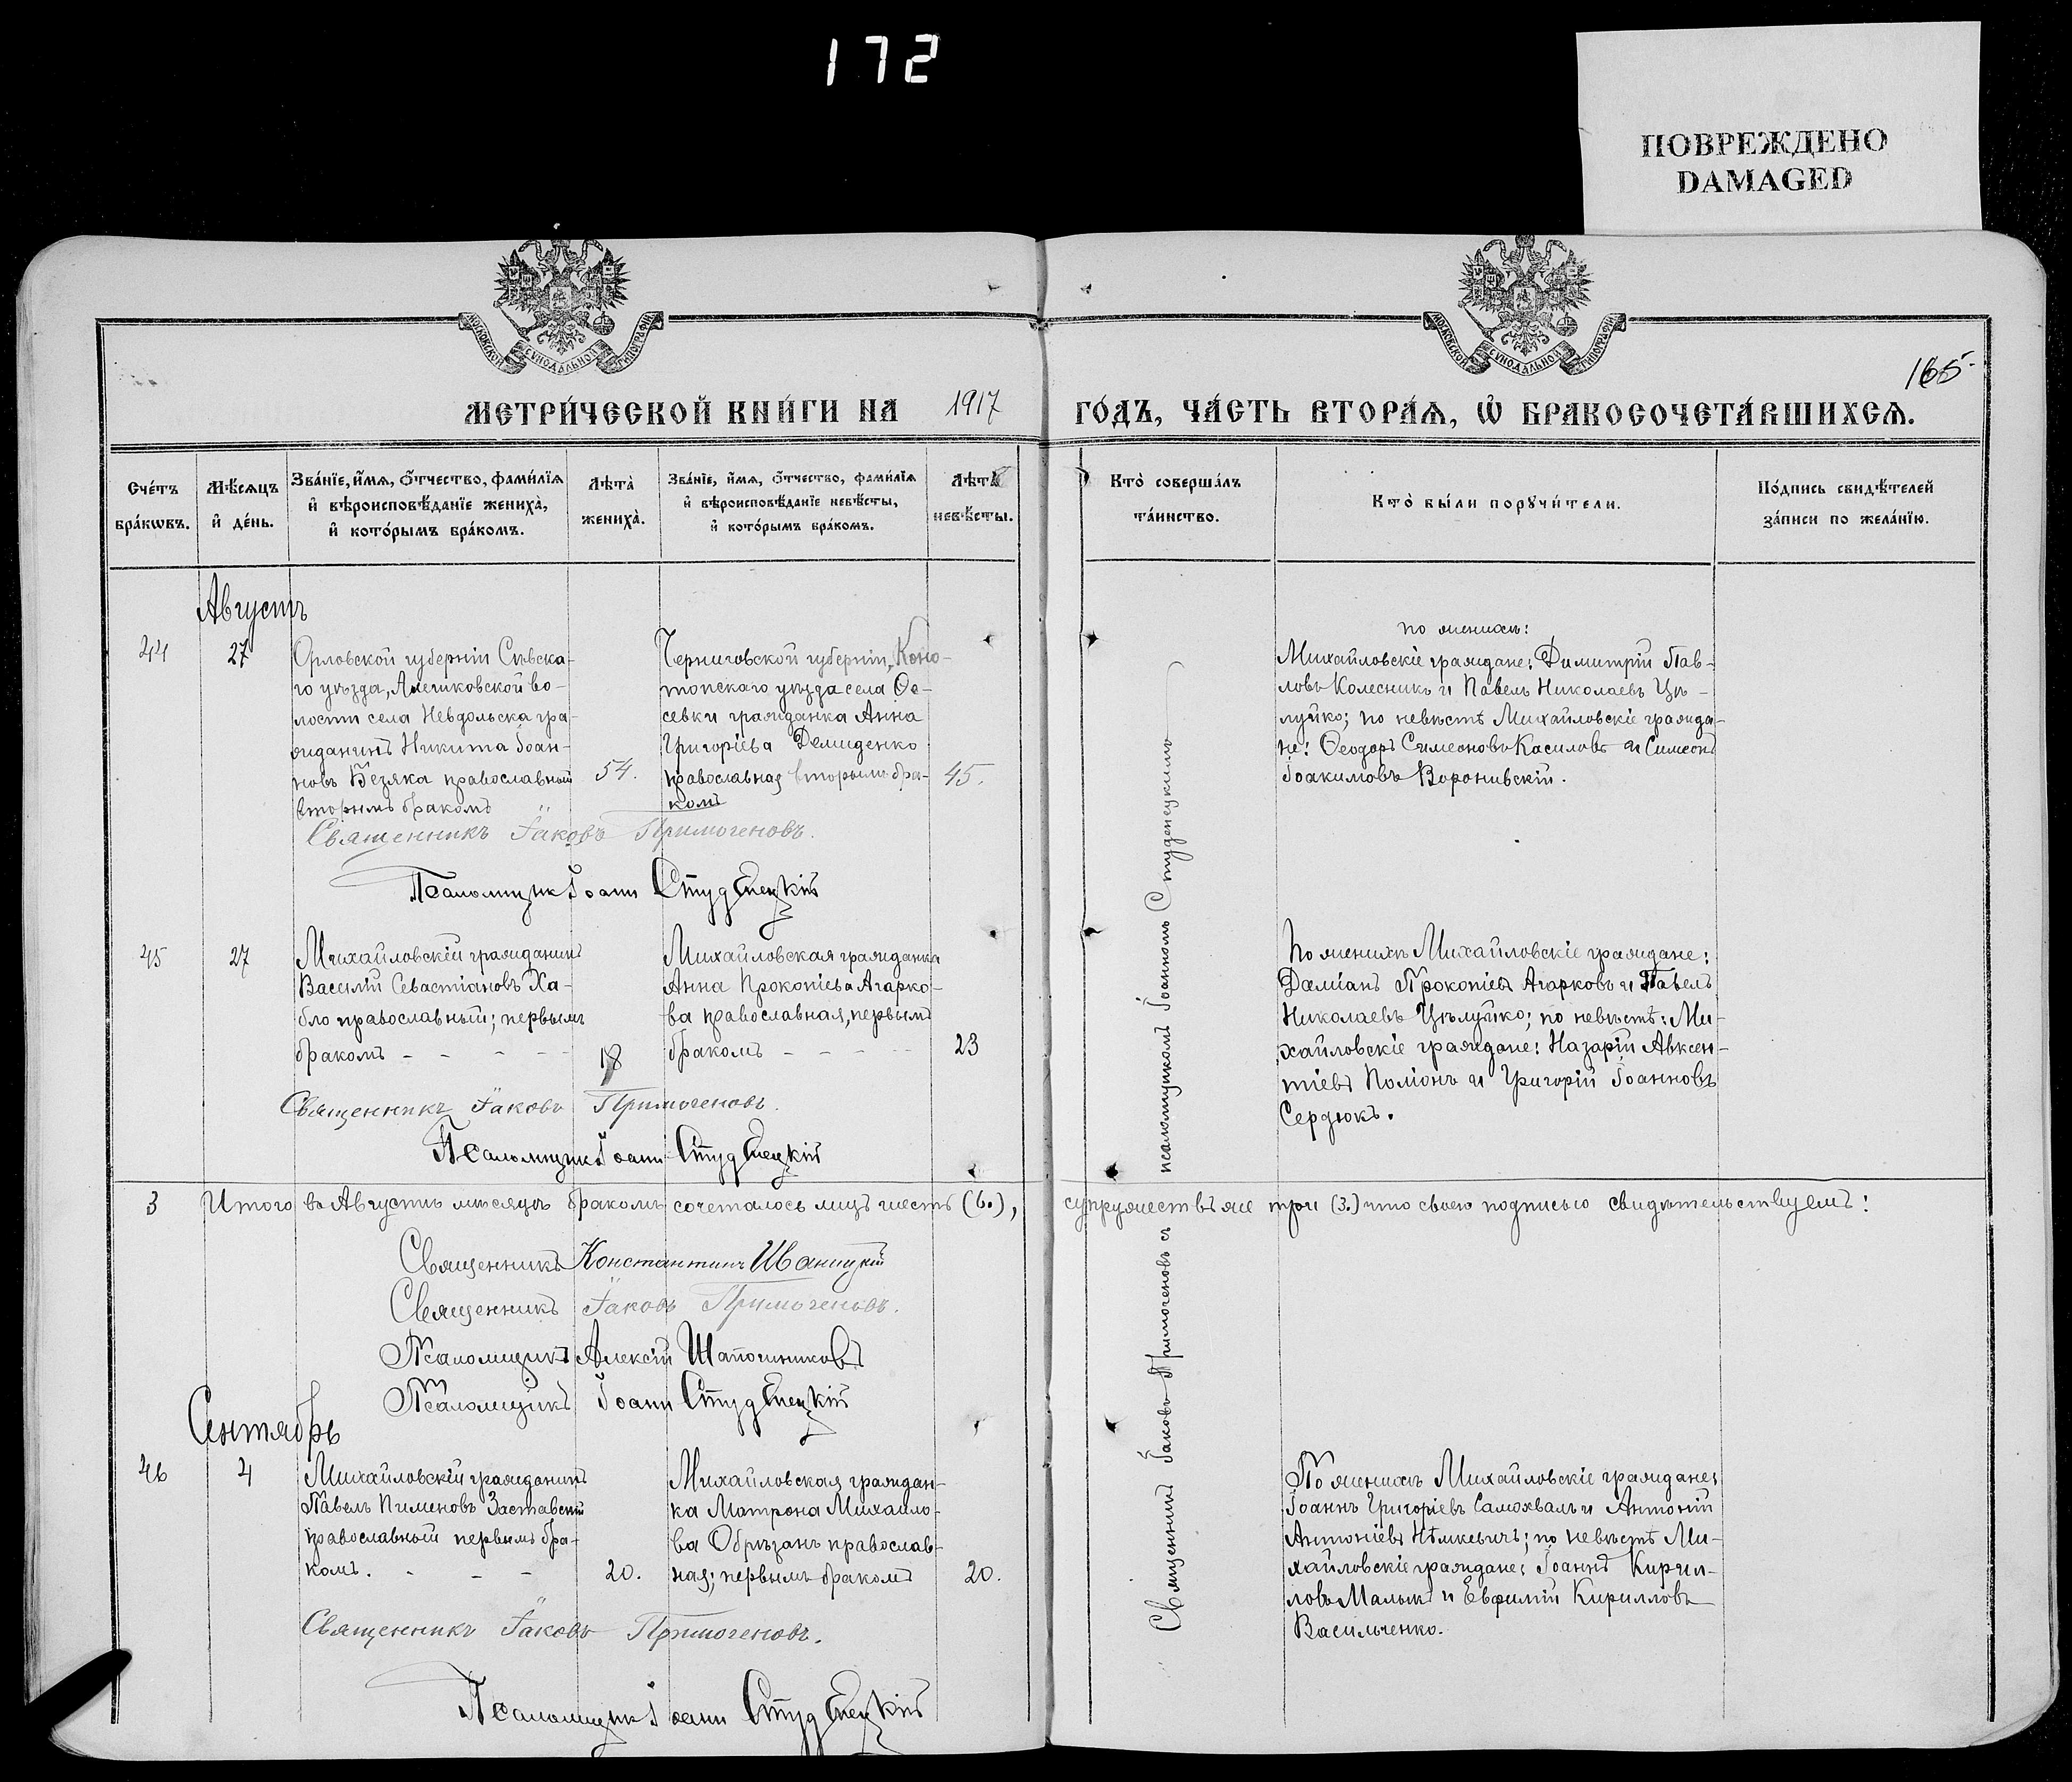 172
ПОВРЕЖДЕНО
DAMAGED
МОСКОВСКОЙ СѴНОДАЛЬНОЙ ТИПОГРАФІИ
МОСКОВСКОЙ СѴНОДАЛЬНОЙ ТИПОГРАФІИ
165
МЕТРИ́ЧЕСКОЙ КНИ́ГИ НА 1917 ГО́ДЪ, ЧА́СТЬ ВТОРА́Ѧ, Ѡ҆ БРАКОСОЧЕТА́ВШИХСѦ.
Сче́тъ
бра́кѡвъ.
Мѣ́сѧцъ
и҆ де́нь.
Зва́нїе, и҆́мѧ, ѻ҆́тчество, фами́лїѧ
и҆ вѣроисповѣ́данїе жениха̀,
и҆ кото́рымъ бра́комъ.
Лѣта̀
жениха̀.
Зва́нїе, и҆́мѧ, ѻ҆́тчество, фами́лїѧ
и҆ вѣроисповѣ́данїе невѣ́сты,
и҆ кото́рымъ бра́комъ.
Лѣта̀
невѣ́сты.
Кто̀ соверша́лъ
та́инство.
Кто̀ бы́ли порꙋчи́тели.
По́дпись свидѣ́телей
за́писи по жела́нїю.
Августъ
44
27
Орловской губерніи Сѣвска-
го уѣзда, Алешковской во-
лости села Невдольска гра-
жданинъ Никита Іоан-
новъ Безяка православный
вторымъ бракомъ
54.
Черниговской губерніи, Коно-
топскаго уѣзда села Ое-
севки гражданка Анна
Григоріева Демиденко
православная вторымъ бра-
комъ
45.
по женихѣ:
Михайловскіе граждане: Димитрій Пав-
ловъ Колесникъ и Павелъ Николаевъ Цѣ-
луйко; по невѣстѣ Михайловскіе гражда-
не: Ѳеодоръ Симеоновъ Касиловъ и Симеонъ
Іоакимовъ Воронивскій.
Священникъ Іаковъ Примогеновъ.
Псаломщикъ Іоанн Студенецкій
45
27
Михайловскій гражданинъ
Василій Севастіановъ Ха-
бло православный; первымъ
бракомъ - - - -
18
Михайловская гражданка
Анна Прокопіева Агарко-
ва православная, первымъ
бракомъ - - - -
23
По женихѣ Михайловскіе граждане:
Даміанъ Прокопіевъ Агарковъ и Павелъ
Николаевъ Цѣлуйко; по невѣстѣ: Ми-
хайловскіе граждане: Назарій Авксен-
тіевъ Поліонъ и Григорій Іоанновъ
Сердюкъ.
Священникъ Іаковъ Примогеновъ.
Псаломщикъ Іоанн Студенецкій
3 Итого въ Августѣ мѣсяцѣ бракомъ сочеталось лицъ шесть (6.), супружествъ же три (3.) что своею подписью свидѣтельствуемъ:
Священникъ Константинъ Иваницкій
Священникъ Іаковъ Примогеновъ.
Псаломщикъ Алексій Шапошниковъ
Псаломщикъ Іоанн Студенецкій
Сентябрь
46
4
Михайловскій гражданинъ
Павелъ Пименовъ Заставскій
православный первымъ бра-
комъ. - - -
20.
Михайловская граждан-
ка Матрона Михаило-
ва Обрѣзанъ православ-
ная; первымъ бракомъ
20.
По женихѣ Михайловскіе граждане:
Іоаннъ Григоріевъ Самохвалъ и Антоній
Антоніевъ Нѣмкевичъ; по невѣстѣ Ми-
хайловскіе граждане: Іоаннъ Кирил-
ловъ Малыкъ и Евфимій Кирилловъ
Васильченко.
Священникъ Іаковъ Примогеновъ.
Псаломщикъ Іоанн Студенецкій
Священникъ Іаковъ Примогеновъ съ псаломщикомъ Іоанномъ Студенецкимъ